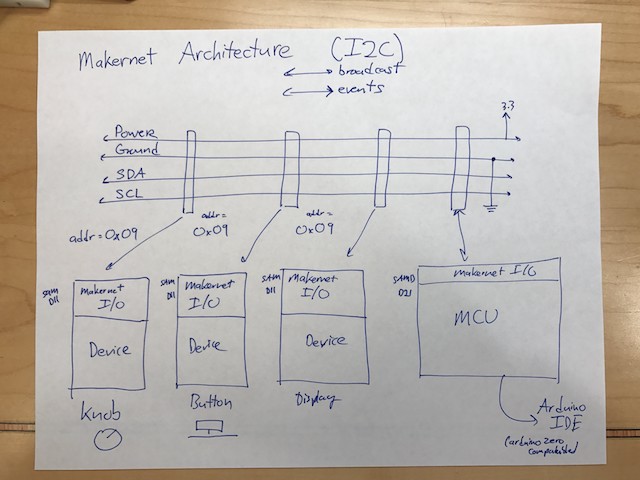 Makernet Architecture (I2C)
broadcast
events
3.3
Power
Ground
SDA
SCL
addr=0x09
addr=
0x09
addr=
0x09
SAM
D11
Makernet
I/O
Device
Knob
SAM
D11
Makernet
I/O
Device
Button
SAM
D11
Makernet
I/O
Device
Display
SAMD
D21
makernet I/O
MCU
Arduino
IDE
(arduino zero